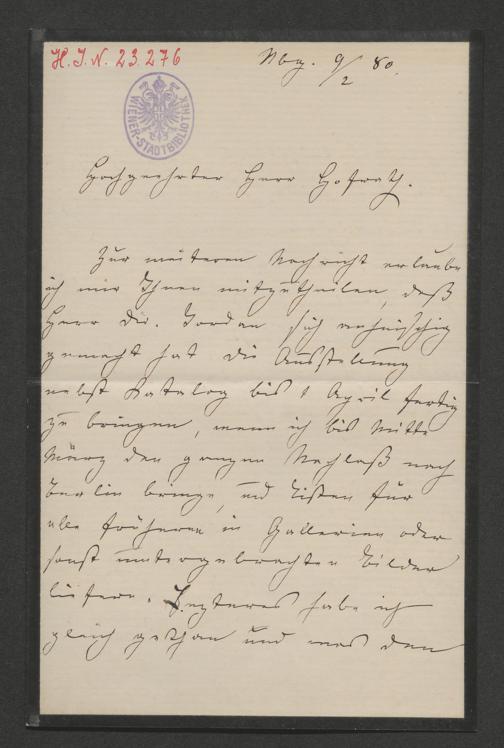 H. I. N. 23.276
Nbg. 9/2 80.
WIENER-STADTBIBLIOTHEK
Hochgeehrter Herr Hofrath.
Zur weiteren Nachricht erlaube
ich mir Ihnen mitzutheilen, daß
Herr Dir. Jordan sich anheischig
gemacht hat die Ausstellung
nebst Katalog bis 1 April fertig
zu bringen, wenn ich bis Mitte
März den ganzen Nachlaß nach
Berlin bringe, und Listen für
alle früheren in Gallerien oder
sonst untergebrachten Bilder
liefere. Lezteres habe ich
gleich gethan und was den